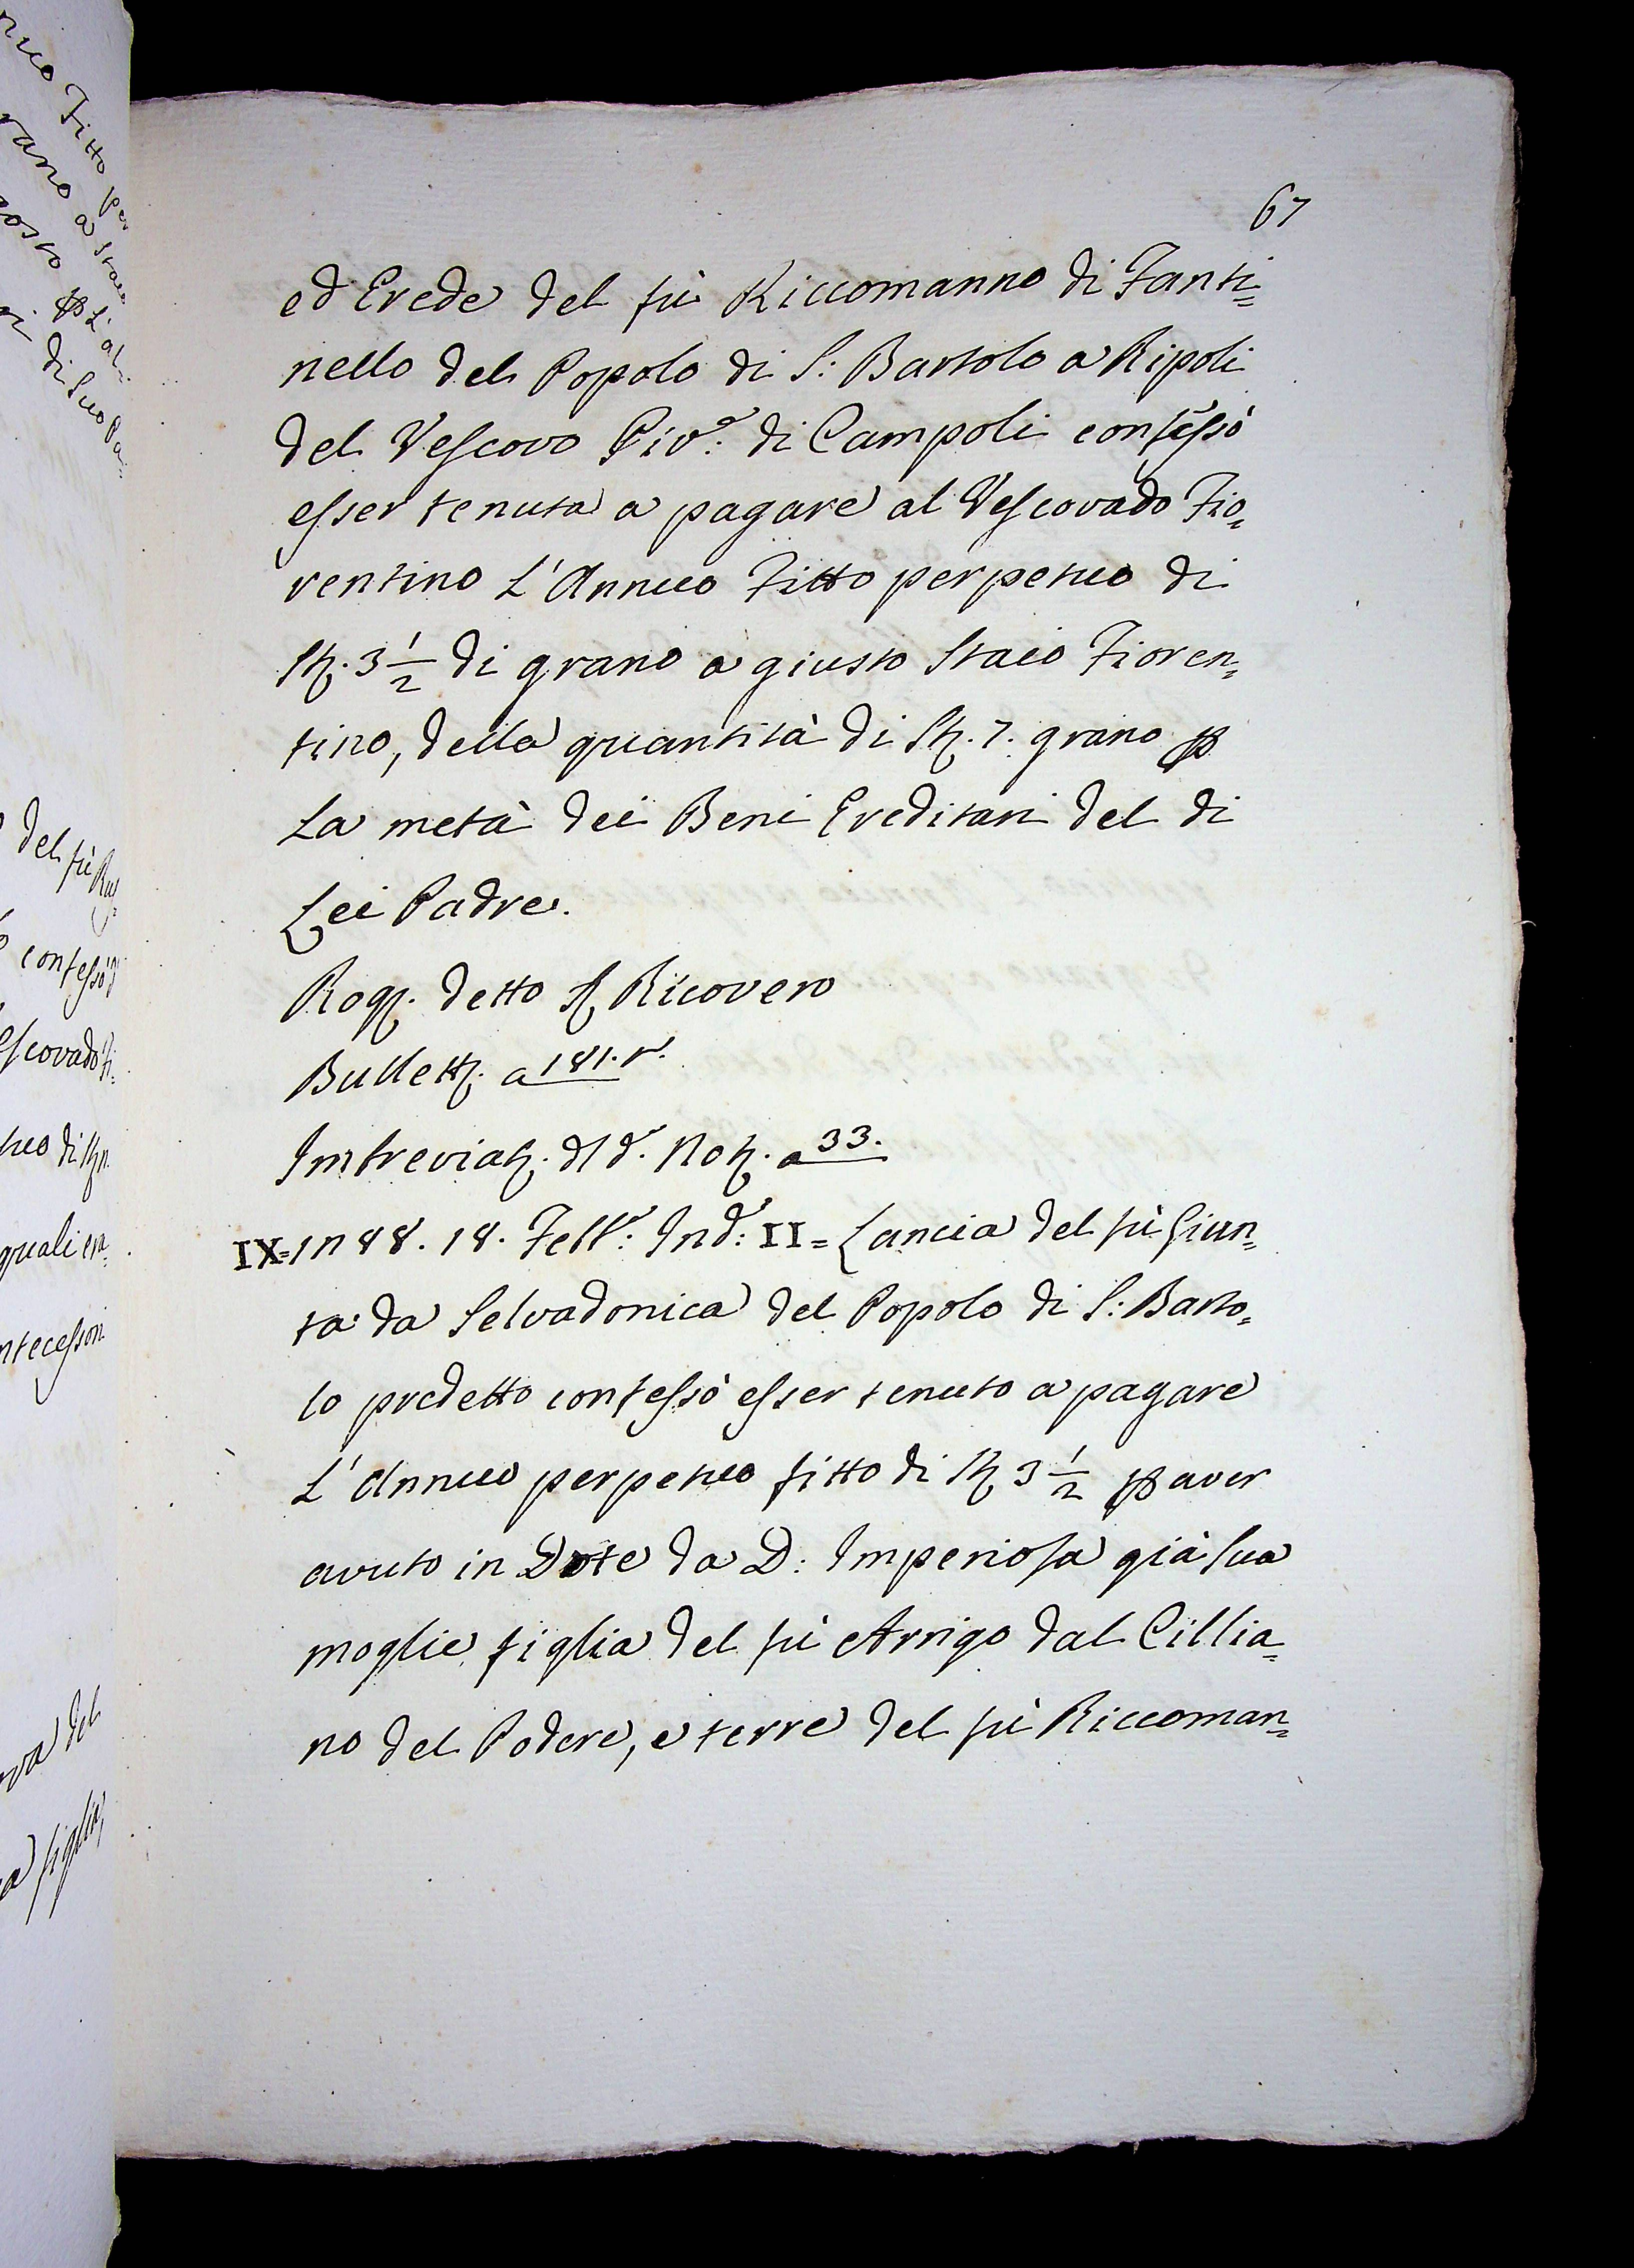 67
ed Erede del fù Riccomanno di Fanti=
nello del Popolo di S: Bartolo a Ripoli
del Vescovo Piv.e di Campoli confessò
esser tenuta a pagare al Vescovado Fio=
rentino L'Annuo Fitto perpetuo di
St. 3 1/2 di grano a giusto Staio Fioren=
tino, della quantità di St. 7. grano p
La metà dei Beni Ereditari del di
Lei Padre.
Rog. detto S Ricovero
Bullett. a 181. r.
Imbreviat. dl d.o Not. a 33.
IX= 1288. 18. Febb.o: Ind.e: II= Lancia del fù Giun=
ta da Selvadonica del Popolo di S: Barto=
lo predetto confessò esser tenuto a pagare
L'Annuo perpetuo fitto di St 3 1/2 p aver
avuto in Dote da D: Imperiosa già sua
moglie figlia del fù Arrigo dal Cillia=
no del Podere, e terre del fù Riccoman=
del fù
confessò